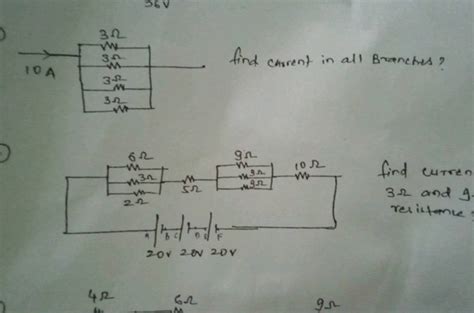 36V
3Ω
3Ω
3Ω
3Ω
10A
find current in all Branches?
6Ω
3Ω
2Ω
5Ω
9Ω
9Ω
9Ω
10Ω
find curren
3Ω and 9
resistance?
A B C D E F
20V 20V 20V
4Ω 6Ω 9Ω